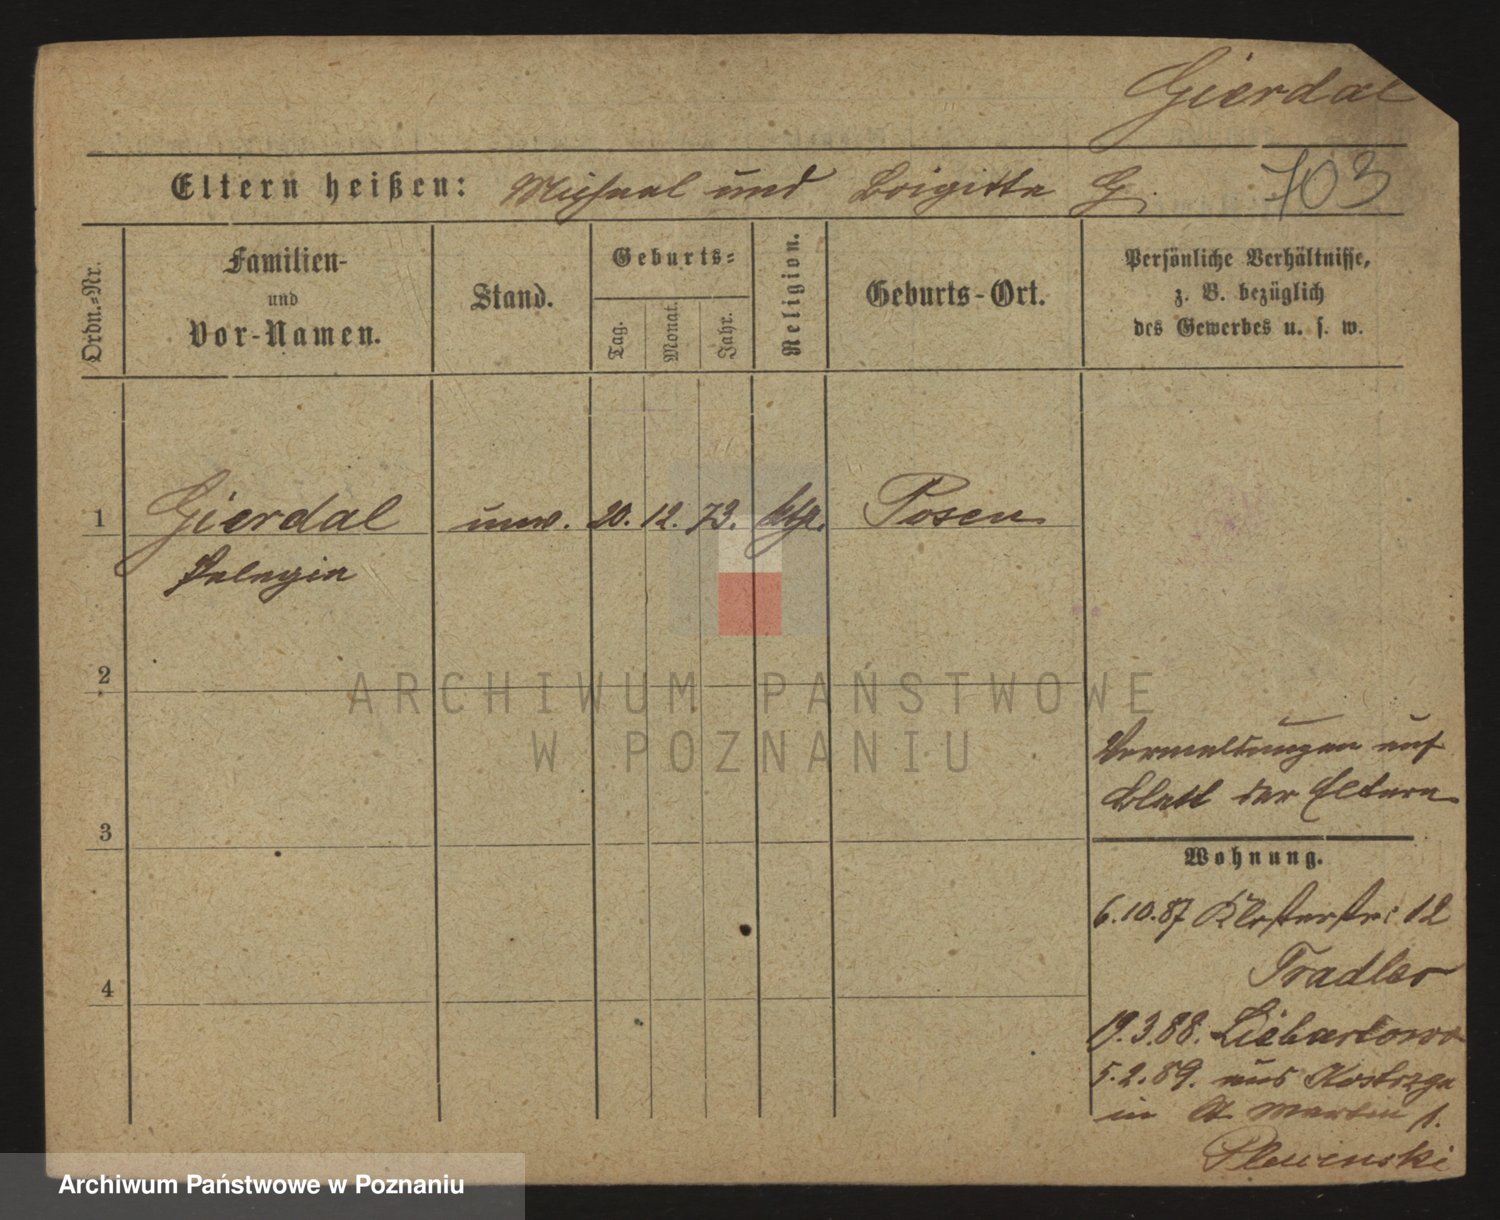 Gierdal
Eltern heißen: Michael und Brigitta G.
703
Ordn.-Nr.
Familien-
und
Vor-Namen.
Stand.
Geburts-
Tag.
Monat.
Jahr.
Religion.
Geburts-Ort.
Persönliche Verhältnisse,
z. B. bezüglich
des Gewerbes u. s. w.
1 Gierdal unv. 20. 12. 73. ktg. Posen
Pelagia
2
3
4
Vermeldungen auf
Blatt der Eltern
Wohnung.
6.10.87 Klosterstr: 12
Tradler
19.3.88. Liebartowo
5.2.89. aus
in St. Martin 1.
Plewinski
ARCHIWUM PAŃSTWOWE
W POZNANIU
Archiwum Państwowe w Poznaniu